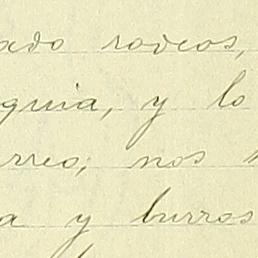 ado rodeos,
quia, y lo
rreo, nos
a y burros